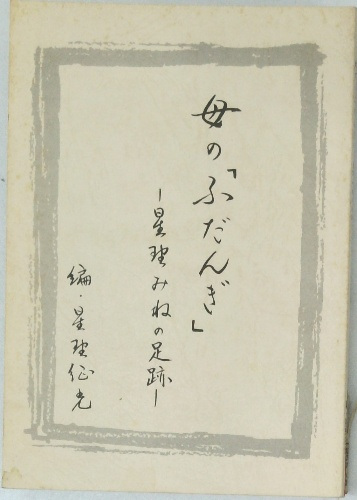 母の「ふだんぎ」
－星野みねの足跡－
編・星野征光